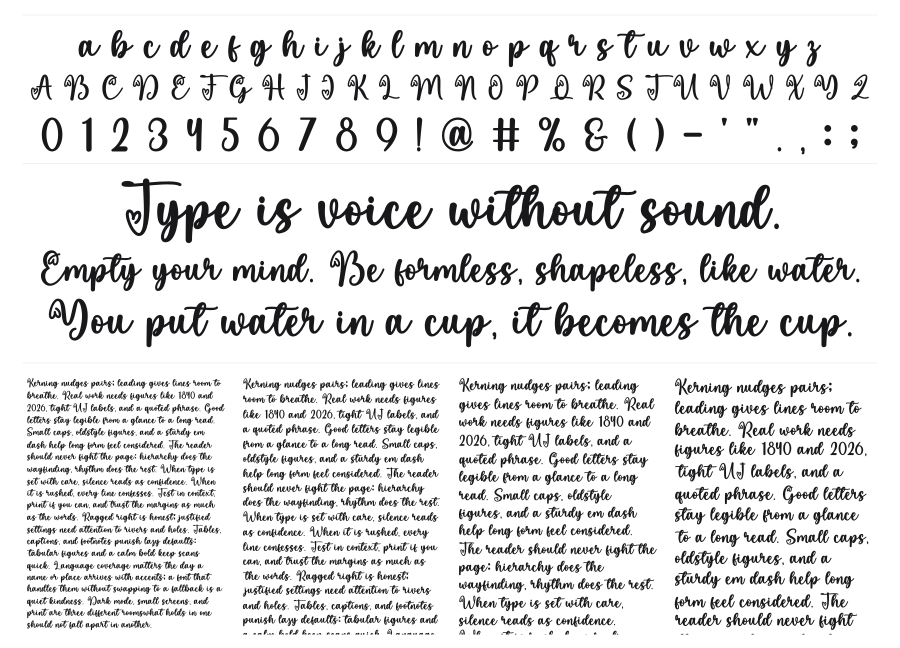 a b c d e f g h i j k l m n o p q r s t u v w x y z
A B C D E F G H I J K L M N O P Q R S T U V W X Y Z
0 1 2 3 4 5 6 7 8 9 ! @ # % & ( ) - ' " . , : ;
Type is voice without sound.
Empty your mind. Be formless, shapeless, like water.
You put water in a cup, it becomes the cup.
Kerning nudges pairs; leading gives lines room to
breathe. Real work needs figures like 1840 and
2026, tight UI labels, and a quoted phrase. Good
letters stay legible from a glance to a long read.
Small caps, oldstyle figures, and a sturdy em
dash help long form feel considered. The reader
should never fight the page: hierarchy does the
wayfinding, rhythm does the rest. When type is
set with care, silence reads as confidence. When
it is rushed, every line confesses. Test in context,
print if you can, and trust the margins as much
as the words. Ragged right is honest; justified
settings need attention to rivers and holes. Tables,
captions, and footnotes punish lazy defaults:
tabular figures and a calm bold keep scans
quick. Language coverage matters the day a
name or place arrives with accents; a font that
handles them without swapping to a fallback is a
quiet kindness. Dark mode, small screens, and
print are three different rooms what holds in one
should not fall apart in another.
Kerning nudges pairs; leading gives lines
room to breathe. Real work needs figures
like 1840 and 2026, tight UI labels, and
a quoted phrase. Good letters stay legible
from a glance to a long read. Small caps,
oldstyle figures, and a sturdy em dash
help long form feel considered. The reader
should never fight the page: hierarchy
does the wayfinding, rhythm does the rest.
When type is set with care, silence reads
as confidence. When it is rushed, every
line confesses. Test in context, print if you
can, and trust the margins as much as
the words. Ragged right is honest;
justified settings need attention to rivers
and holes. Tables, captions, and footnotes
punish lazy defaults: tabular figures and
a calm bold keep scans quick. Language
Kerning nudges pairs; leading
gives lines room to breathe. Real
work needs figures like 1840 and
2026, tight UI labels, and a
quoted phrase. Good letters stay
legible from a glance to a long
read. Small caps, oldstyle
figures, and a sturdy em dash
help long form feel considered.
The reader should never fight the
page: hierarchy does the
wayfinding, rhythm does the rest.
When type is set with care,
silence reads as confidence.
Kerning nudges pairs;
leading gives lines room to
breathe. Real work needs
figures like 1840 and 2026,
tight UI labels, and a
quoted phrase. Good letters
stay legible from a glance
to a long read. Small caps,
oldstyle figures, and a
sturdy em dash help long
form feel considered. The
reader should never fight